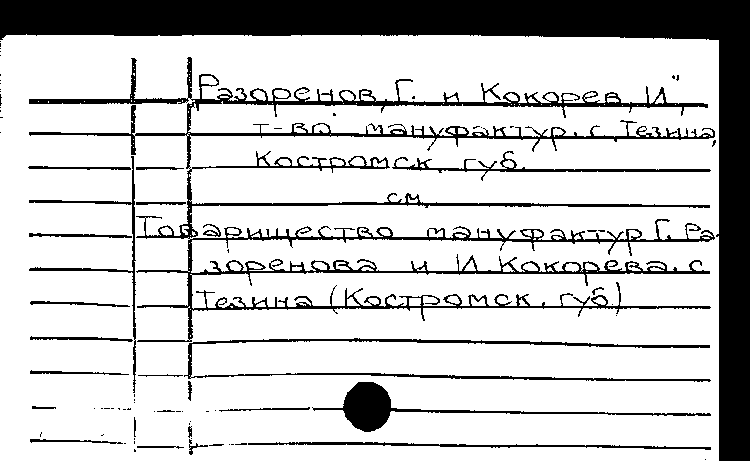 Разоренов, Г. и Кокорев, И",
т-во мануфактур. с. Тезина,
Костромск. губ.
см.
Товарищество мануфактур Г. Ра-
зоренова и И. Кокорева. с
Тезина (Костромск. губ)